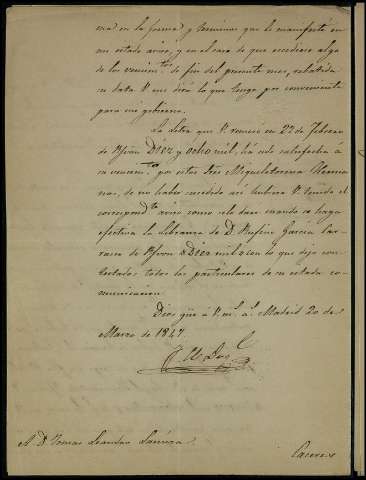 ma en la forma y terminos que le manifesté en
mi citado aviso, y en el caso de que excediere algo
de los vencim.tos de fin del presente mes, rebatida
su data V. me dirá lo que tenga por conveniente
para mi gobierno.
La Letra que V. remesó en 22 de Febrero
de Rvon Diez y ocho mil, ha sido satisfecha á
su vencim.to por estos Sres Miqueletorena Herma
nos, de no haber sucedido así hubiera V. tenido el
correspond.te aviso como se lo daré cuando se haga
efectiva la Libranza de D. Rufino García Car
rasco de Rvon Diez mil; con lo que dejo con
testados todos los particulares de su citada co-
municacion.
Dios gue á V. m.s a.s Madrid 20 de
Marzo de 1847.
A D. Tomas Leandro
Caceres